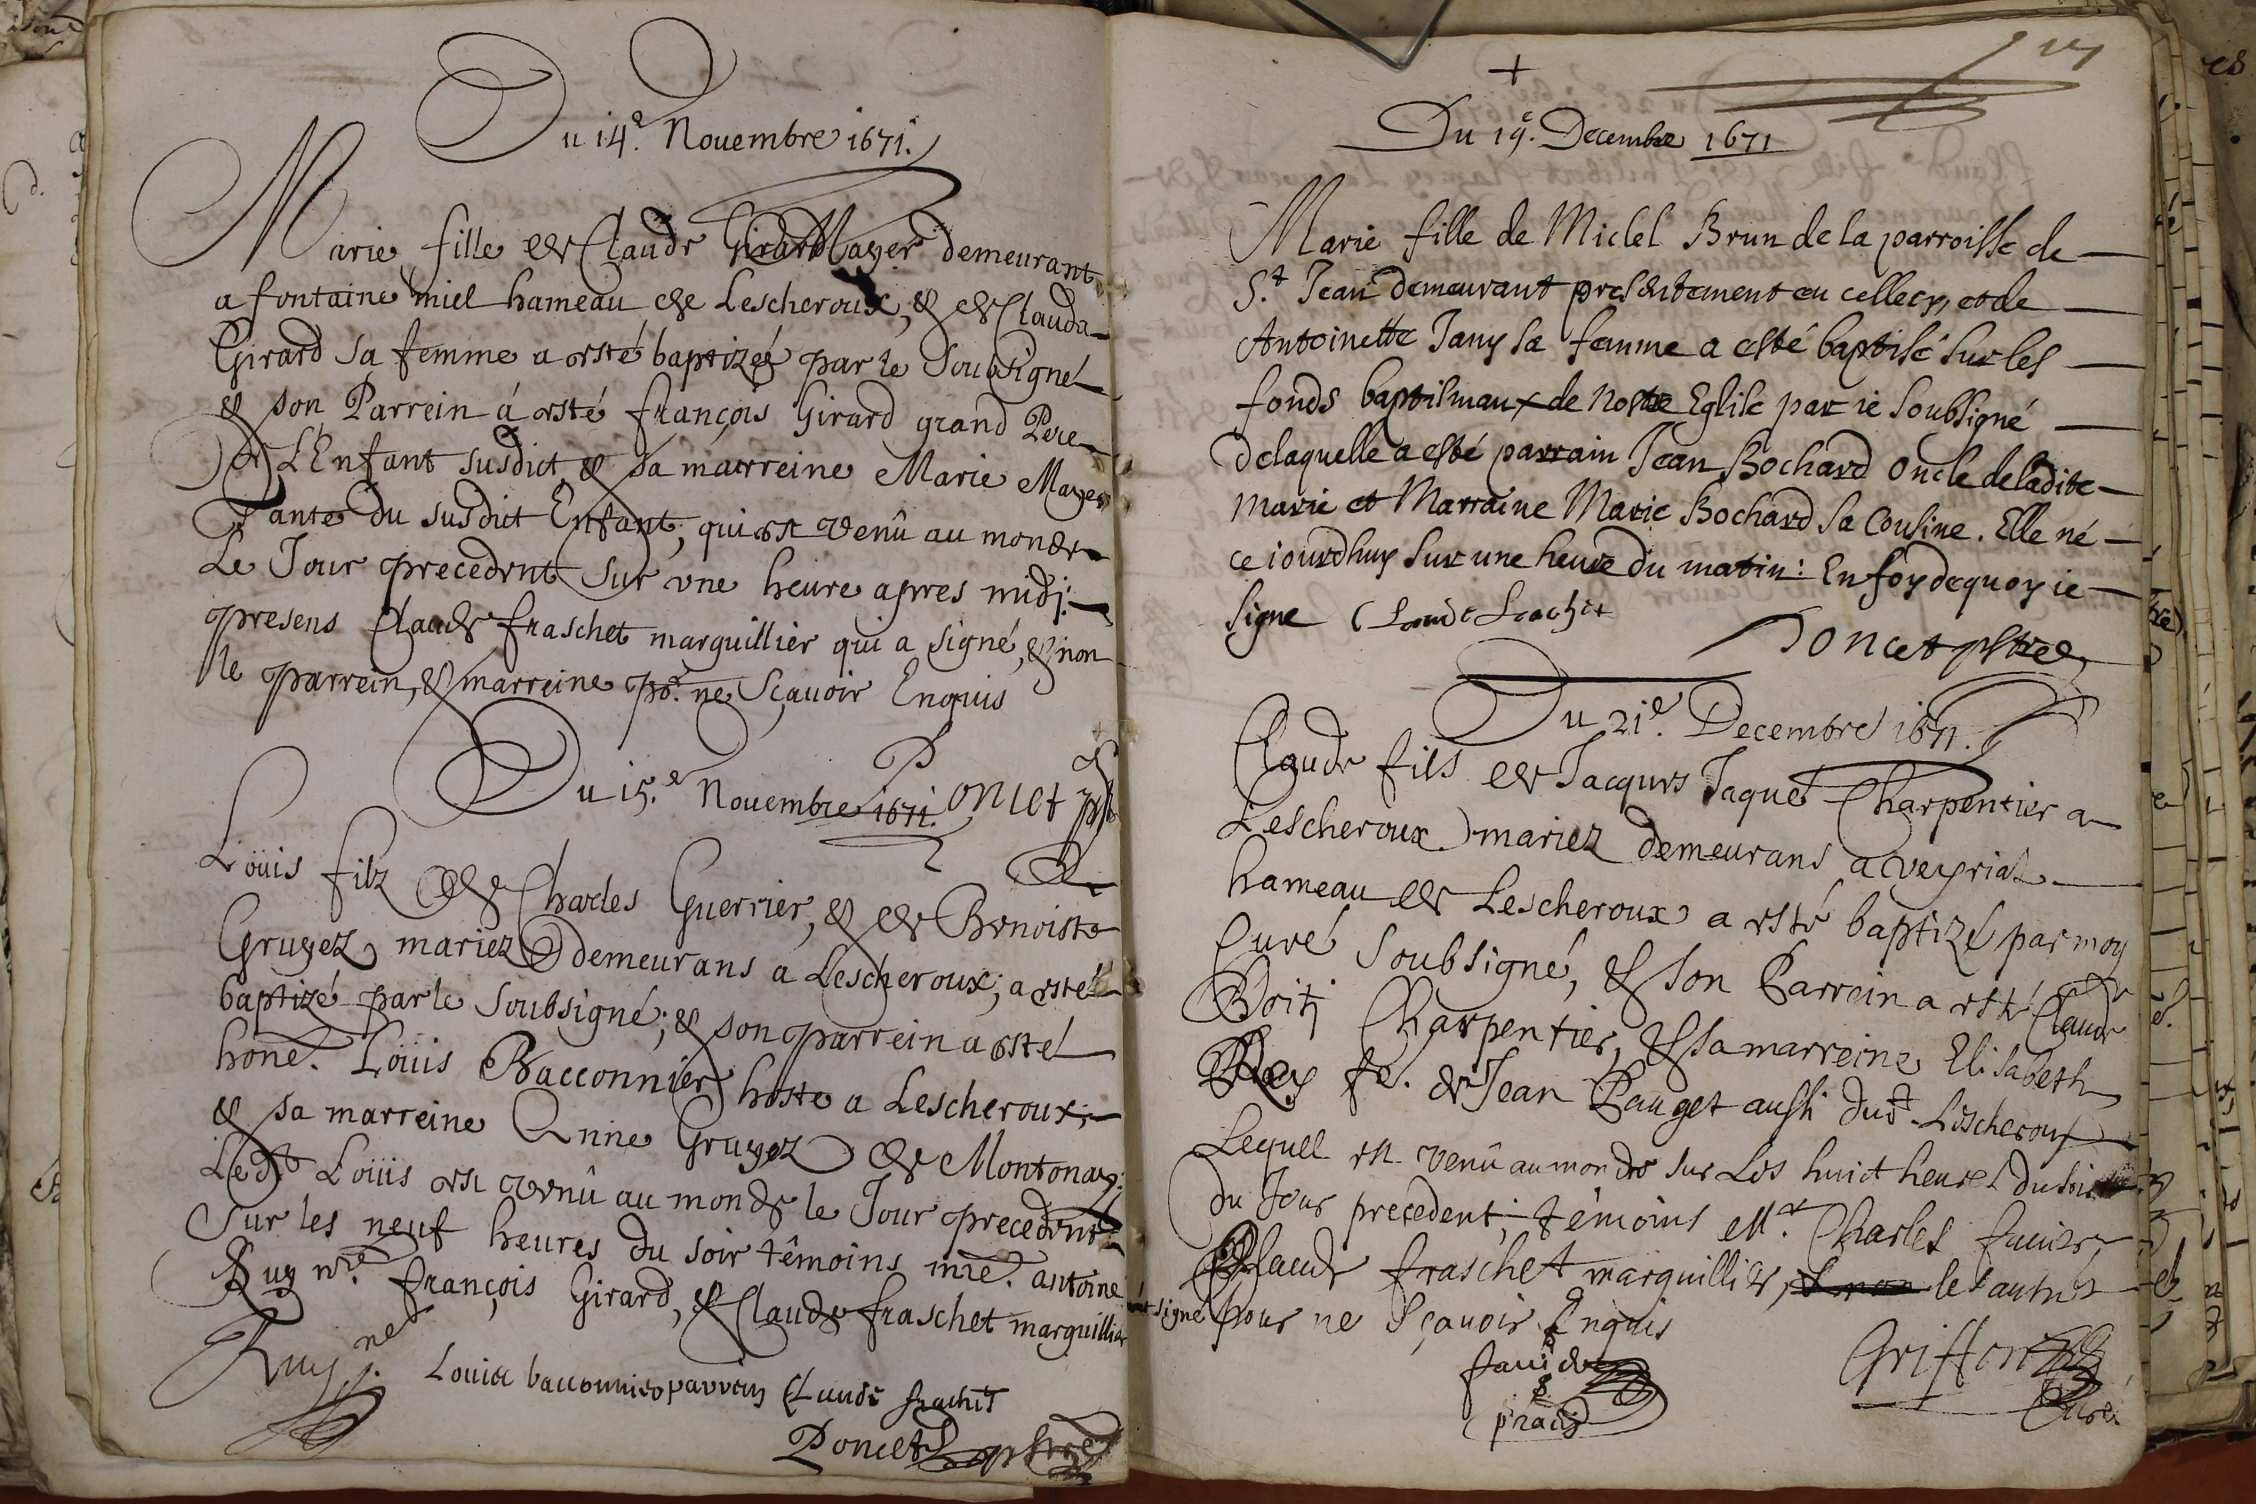 Du 14e. Nouembre 1671.
Marie fille de Claude Mayer demeurant
a fontaine miel hameau de Lescheroux, & de Clauda
Girard sa femme a esté baptizée par le Soubsigné
& son Parrein á esté françois Girard grand Pere
de L'Enfant susdict, & sa marreine Marie Mayer
Tante du susdict Enfant, qui est venû au monde
Le Jour precedent sur vne heure apres midj:
presens Claude fraschet marguillier qui a signé, & non
le parrein, & marreine pr. ne Sçauoir Enquis
Poncet
Du 15.e Nouembre 1671.
Loüis filz de Charles Guerrier, & de Benoiste
Gruyez mariez demeurans a Lescheroux; a esté
baptizé par le Soubsigné; & son parrein a esté
hone. Loüis Bacconnier hoste a Lescheroux;
& sa marreine Anne Gruyez de Montonay:
Ledt Loüis est venû au monde le Jour precedent
Sur les neuf heures du soir têmoins mre. antoine
Ruy nre. françois Girard, & Claude fraschet marguillier
Ruy ne
Louis bacconnier parrein Claude frachet
Poncet pstre
17
+
Du 19e. Decembre 1671
Marie fille de Miclel Brun de la parroisse de
St. Jean demeurant presentement en cellecy, et de
Antoinette Jany sa femme a esté baptisé sur les
fonds baptismaux de nostre Eglise par ie soubsigné
delaquelle a esté parrain Jean Bochard oncle deladite
marie et Marraine Marie Bochard sa cousine. Elle né
ce iourdhuy sur une heure du matin: En foy dequoy ie
signe Claude frachet
Poncet pstre
Du 21e. Decembre 1671.
Claude fils de Jacques Jaquet Charpentier a
Lescheroux mariez demeurans a veyriat
hameau de Lescheroux a esté baptizé par moy
Curé Soubsigné, & son Parrein a esté Claude
Boitj Charpentier, & sa marreine Elisabeth
Rey fe. de Jean Pauget aussi dudt. Lescheroux
Lequel est venû au monde sur Les huict heures du soir
du Jour precedent; têmoins Mre. Charles fauier,
Claude fraschet marguillier, & non les autres
signé pour ne Sçauoir Enquis
fauier
pñt
Griffon
Curé